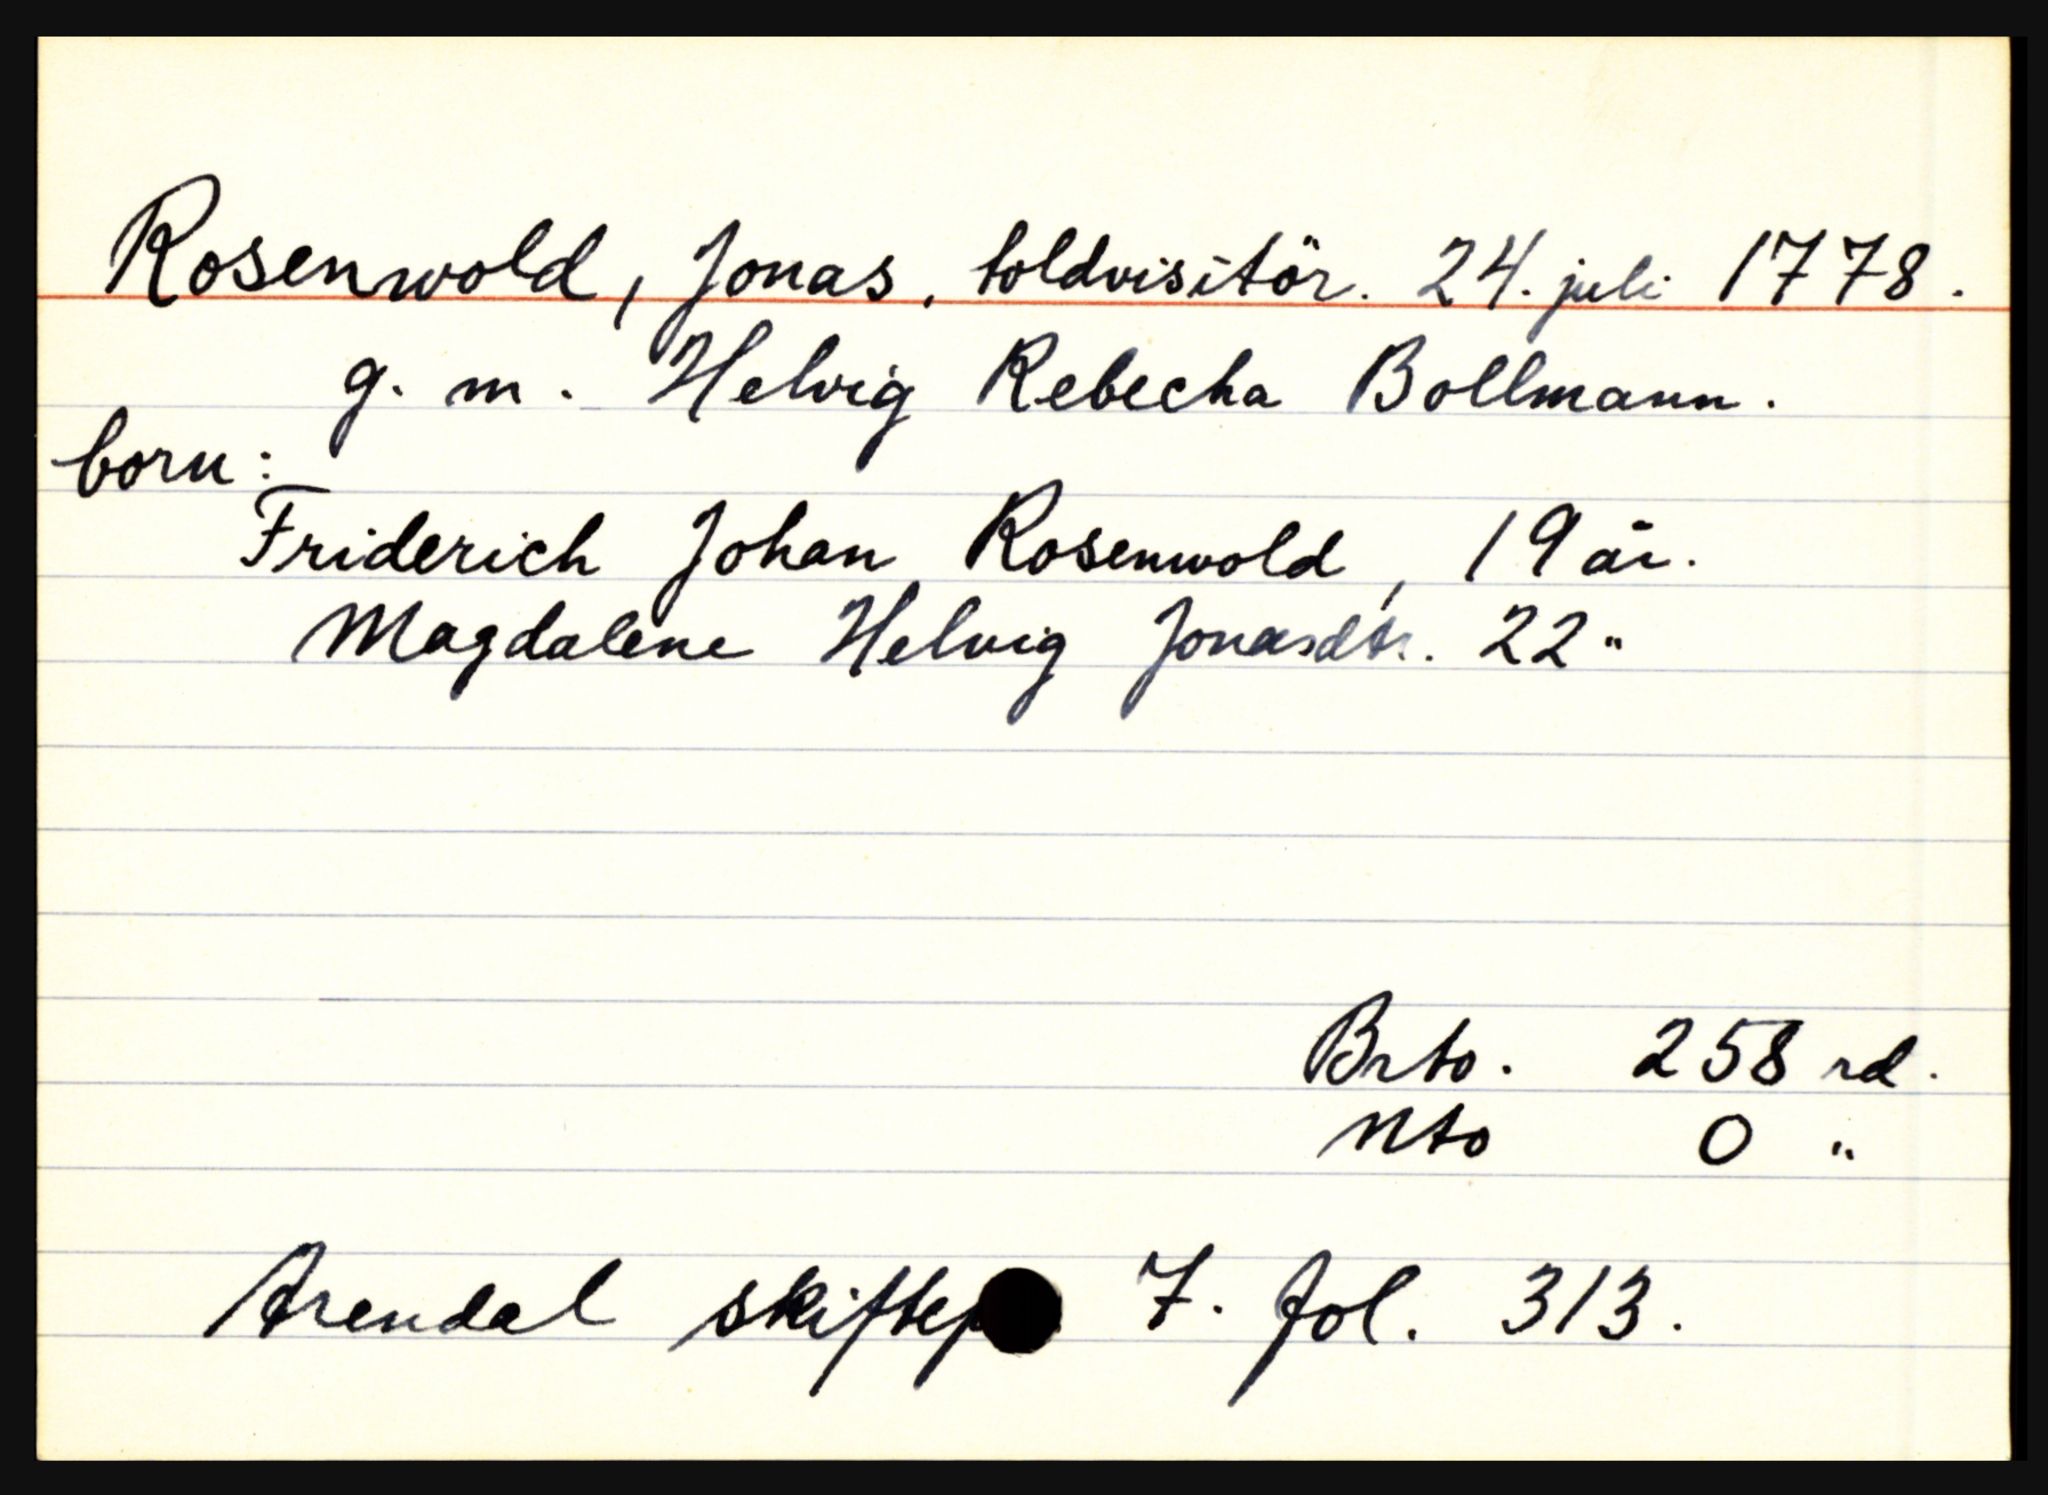 Rosenwold, Jonas, toldvisitör. 24. juli 1778.
g. m. Helvig Rebecha Bollmann.
born:
Friderich Johan Rosenwold, 19 år.
Magdalene Helvig Jonasdtr. 22 "
Brto. 258 rd.
Nto 0 "
Arendal skiftep 7. fol. 313.